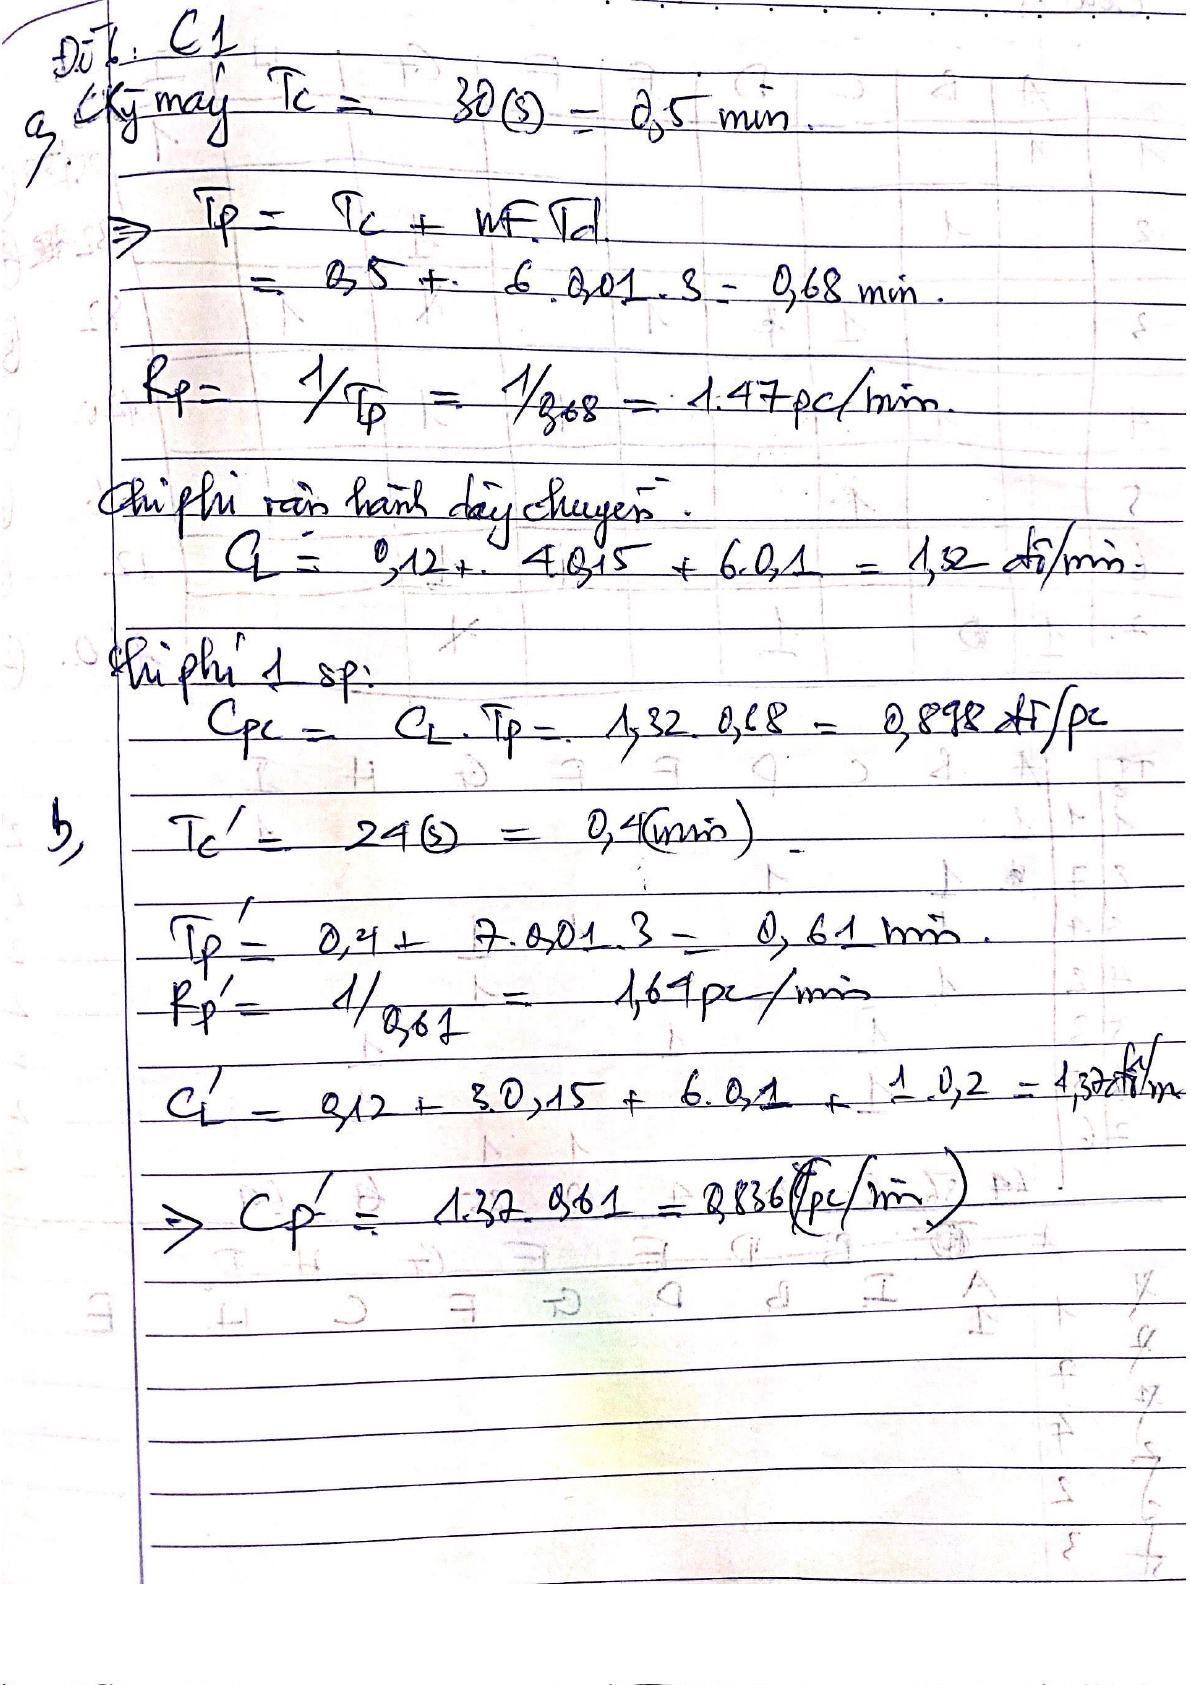 Đề 6: C1
a, Ckỳ máy Tc = 30(s) = 0,5 min.
=> Tp = Tc + nF.Td.
= 0,5 + 6.0,01.3 = 0,68 min.
Rp = 1/Tp = 1/0,68 = 1.47pc/min.
Chi phí vận hành dây chuyền.
CL = 0,12 + 4.0,15 + 6.0,1 = 1,32 đ/min.
Chi phí 1 sp:
Cpc = CL.Tp = 1,32.0,68 = 0,898 đ/pc
b, Tc' = 24(s) = 0,4(min).
Tp' = 0,4 + 7.0,01.3 = 0,61 min.
Rp' = 1/0,61 = 1,64pc/min
CL' = 0,12 + 3.0,15 + 6.0,1 + 1.0,2 = 1,37 đ/m
=> Cp' = 1.37.0,61 = 0,836(pc/min)